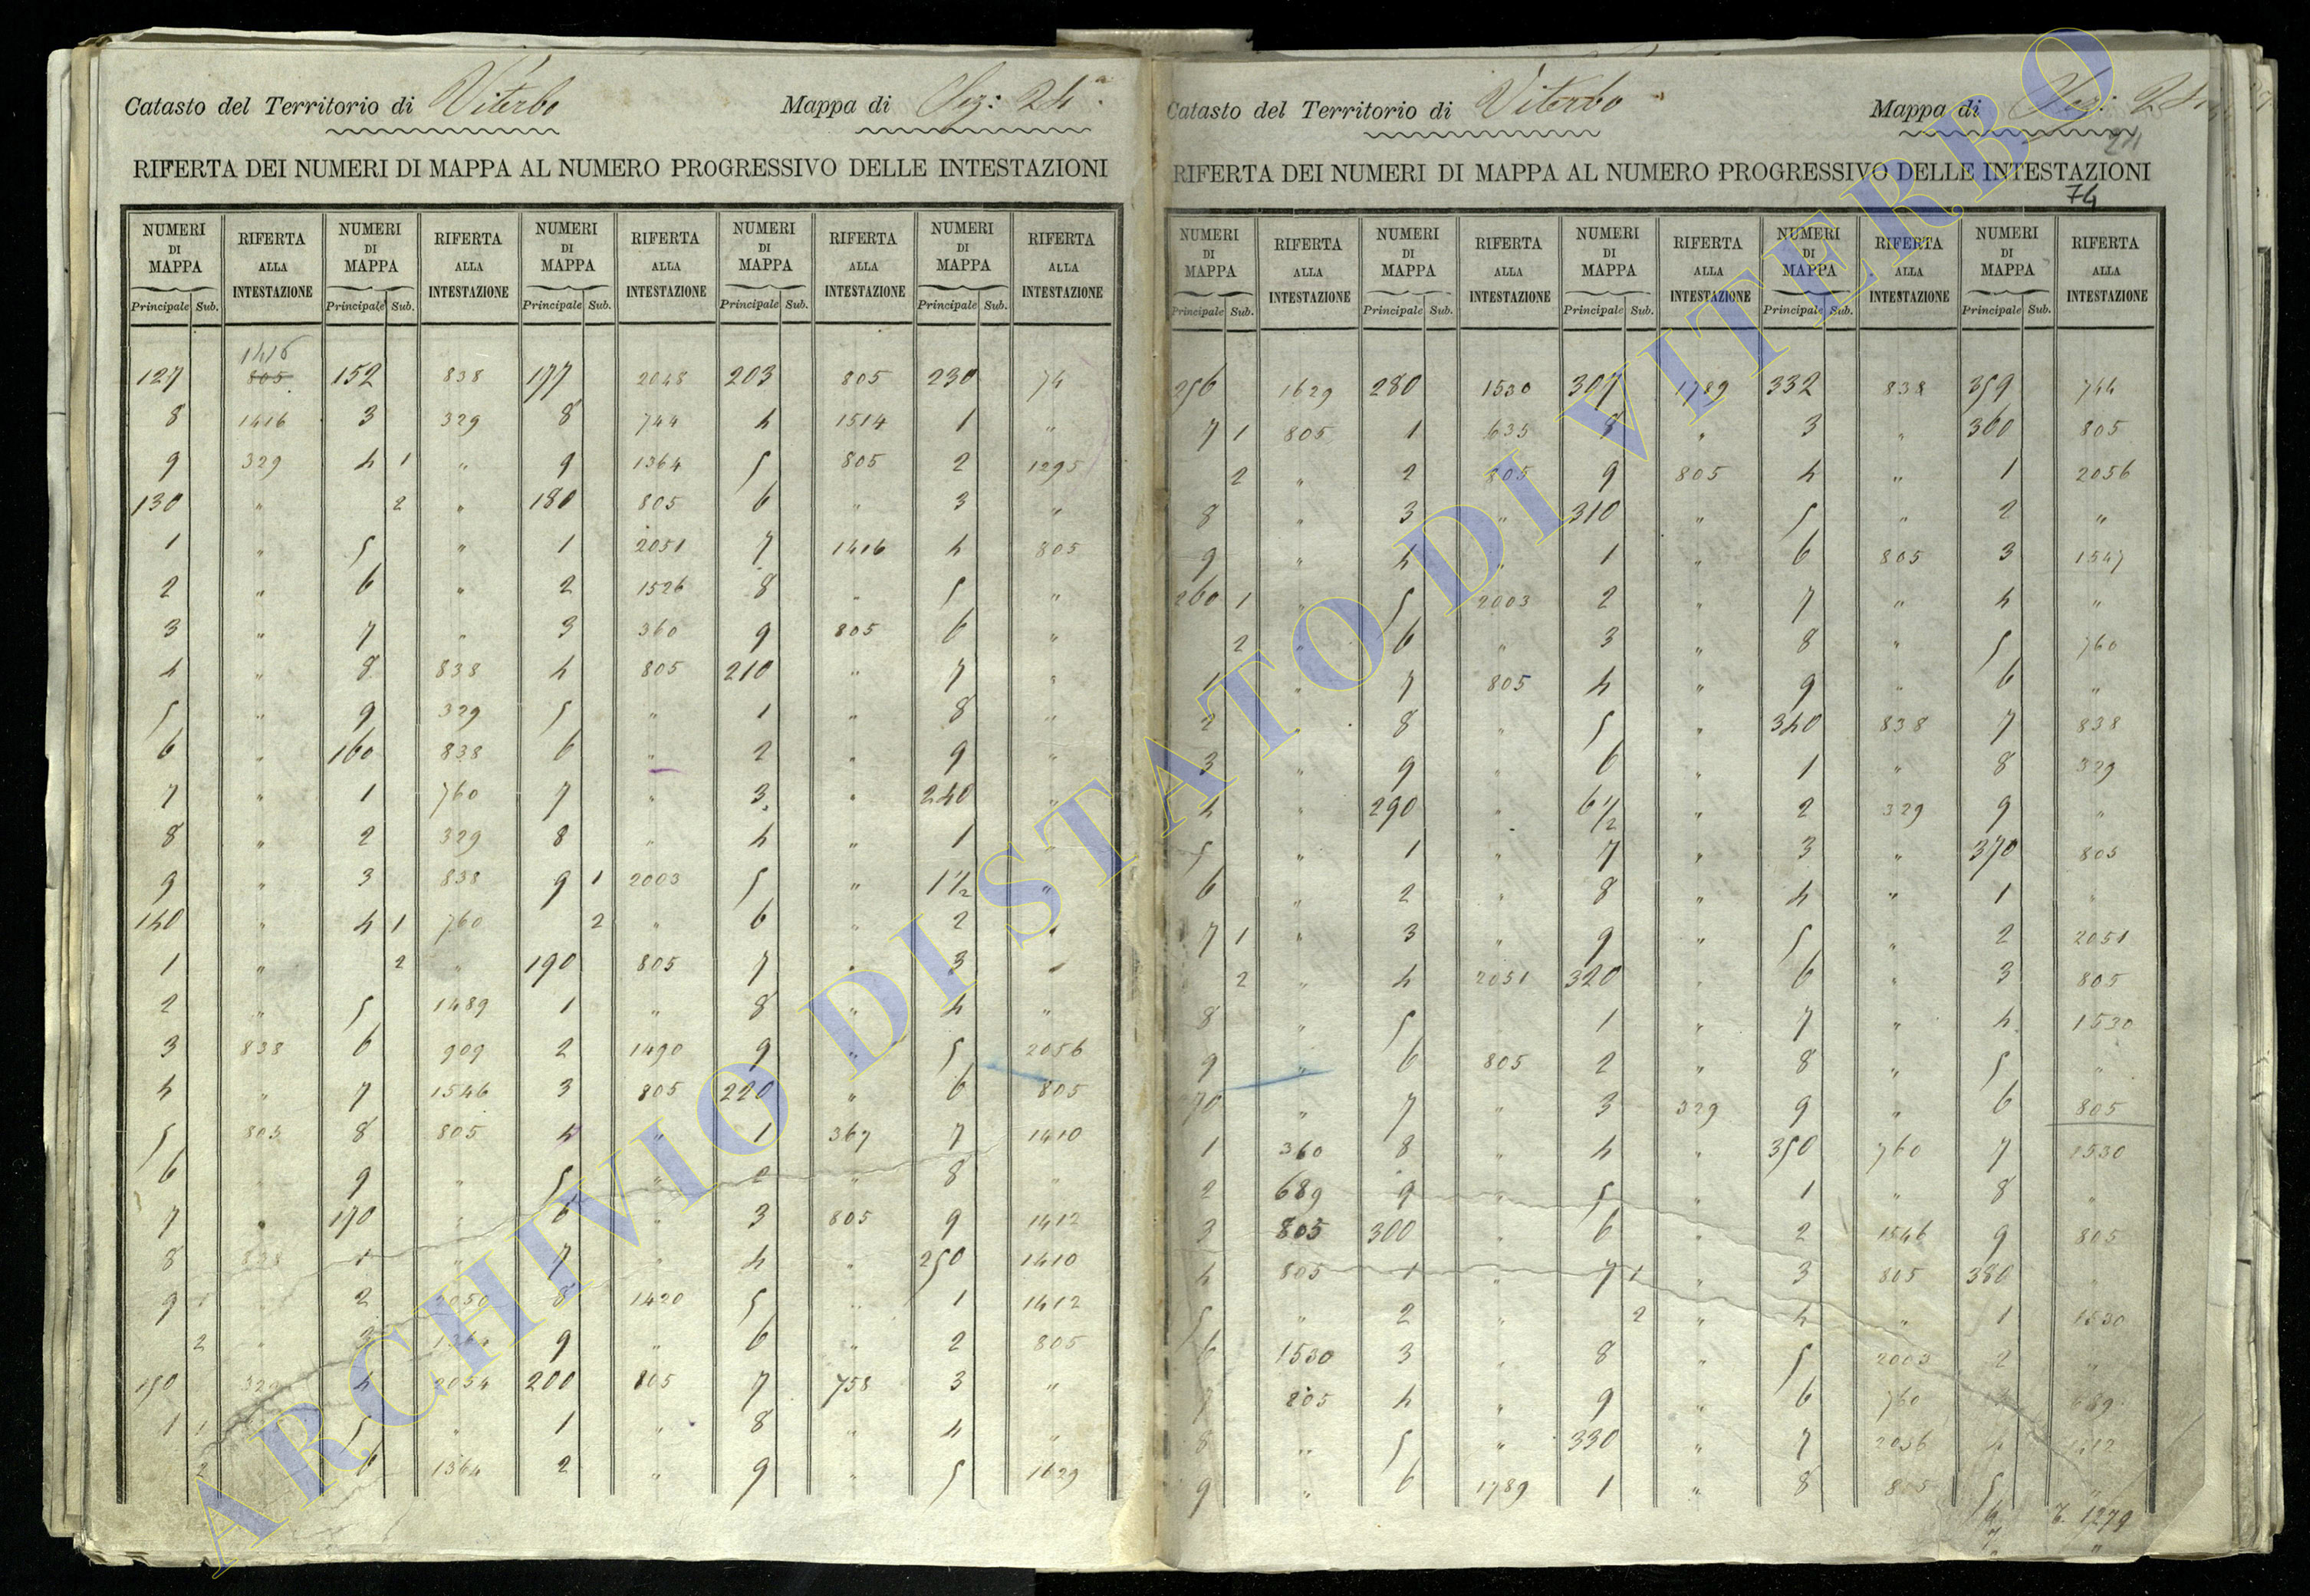 Catasto del Territorio di Viterbo Mappa di Sez: 24ª
RIFERTA DEI NUMERI DI MAPPA AL NUMERO PROGRESSIVO DELLE INTESTAZIONI
NUMERI DI MAPPA RIFERTA ALLA INTESTAZIONE NUMERI DI MAPPA RIFERTA ALLA INTESTAZIONE NUMERI DI MAPPA RIFERTA ALLA INTESTAZIONE NUMERI DI MAPPA RIFERTA ALLA INTESTAZIONE NUMERI DI MAPPA RIFERTA ALLA INTESTAZIONE
Principale Sub. Principale Sub. Principale Sub. Principale Sub. Principale Sub.
1416
127 805 152 838 177 2048 203 805 230 74
8 1416 3 329 8 744 4 1514 1 "
9 329 4 1 " 9 1364 5 805 2 1295
130 " 2 " 180 805 6 " 3 "
1 " 5 " 1 2051 7 1416 4 805
2 " 6 " 2 1526 8 " 5 "
3 " 7 " 3 360 9 805 6 "
4 " 8 838 4 805 210 " 7 "
5 " 9 329 5 " 1 " 8 "
6 " 160 838 6 " 2 " 9 "
7 " 1 760 7 " 3 " 240 "
8 " 2 329 8 " 4 " 1 "
9 " 3 838 9 1 2003 5 " 1 1/2 "
140 " 4 1 760 2 " 6 " 2 "
1 " 2 " 190 805 7 " 3 "
2 " 5 1489 1 " 8 " 4 "
3 838 6 909 2 1490 9 " 5 2056
4 " 7 1546 3 805 220 " 6 805
5 805 8 805 4 " 1 367 7 1410
6 " 9 " 5 " 2 " 8 "
7 " 170 " 6 " 3 805 9 1412
8 838 1 " 7 " 4 " 250 1410
9 1 " 2 2050 8 1420 5 " 1 1412
2 " 3 9 " 6 " 2 805
150 329 4 2054 200 805 7 758 3 "
1 1 5 " 1 " 8 " 4 "
2 6 1364 2 " 9 " 5 1629
Catasto del Territorio di Viterbo Mappa di Sez: 24
24
RIFERTA DEI NUMERI DI MAPPA AL NUMERO PROGRESSIVO DELLE INTESTAZIONI
74
NUMERI DI MAPPA RIFERTA ALLA INTESTAZIONE NUMERI DI MAPPA RIFERTA ALLA INTESTAZIONE NUMERI DI MAPPA RIFERTA ALLA INTESTAZIONE NUMERI DI MAPPA RIFERTA ALLA INTESTAZIONE NUMERI DI MAPPA RIFERTA ALLA INTESTAZIONE
Principale Sub. Principale Sub. Principale Sub. Principale Sub. Principale Sub.
256 1629 280 1530 307 1789 332 838 359 744
7 1 805 1 635 8 " 3 " 360 805
2 " 2 805 9 805 4 " 1 2056
8 " 3 " 310 " 5 " 2 "
9 " 4 " 1 " 6 805 3 1547
260 1 " 5 2003 2 " 7 " 4 "
2 " 6 " 3 " 8 " 5 760
1 " 7 805 4 " 9 " 6 "
2 " 8 " 5 " 340 838 7 838
3 " 9 " 6 " 1 " 8 329
4 " 290 " 6 1/2 " 2 329 9 "
5 " 1 " 7 " 3 " 370 805
6 " 2 " 8 " 4 " 1 "
7 1 " 3 " 9 " 5 " 2 2051
2 " 4 2051 320 " 6 " 3 805
8 " 5 " 1 " 7 " 4 1530
9 " 6 805 2 " 8 " 5 "
270 " 7 " 3 329 9 " 6 805
1 360 8 " 4 " 350 760 7 1530
2 689 9 " 5 " 1 " 8 "
3 805 300 " 6 " 2 1546 9 805
4 805 1 " 7 1 " 3 805 380 "
5 " 2 " 2 " 4 " 1 1530
6 1530 3 " 8 " 5 2003 2 "
7 805 4 " 9 " 6 760 689
8 " 5 " 330 " 7 2056 4 1412
9 " 6 1789 1 " 8 805 5 "
6 T. 1279
7 "
ARCHIVIO DI STATO DI VITERBO